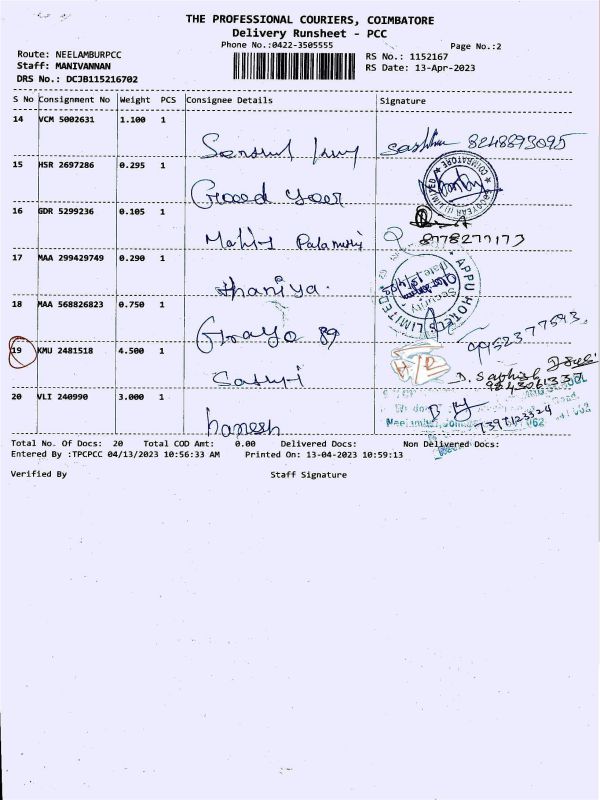 THE PROFESSIONAL COURIERS, COIMBATORE
Delivery Runsheet - PCC
Phone No.:0422-3505555
Page No.:2
Route: NEELAMBURPCC
Staff: MANIVANNAN
DRS No.: DCJB115216702
RS No.: 1152167
RS Date: 13-Apr-2023
S No Consignment No Weight PCS Consignee Details Signature
14 VCM 5002631 1.100 1
8248893095
15 HSR 2697286 0.295 1
Good year
COIMBATORE
16 GDR 5299236 0.105 1
8778277173
17 MAA 299429749 0.290 1
thaniya.
APPU HOTELS LIMITED
Security
18 MAA 568826823 0.750 1
89
9952377593
19 KMU 2481518 4.500 1
20 VLI 240990 3.000 1
7397123324
hamesh
Total No. Of Docs: 20 Total COD Amt: 0.00 Delivered Docs: Non Delivered Docs:
Entered By :TPCPCC 04/13/2023 10:56:33 AM Printed On: 13-04-2023 10:59:13
Verified By Staff Signature